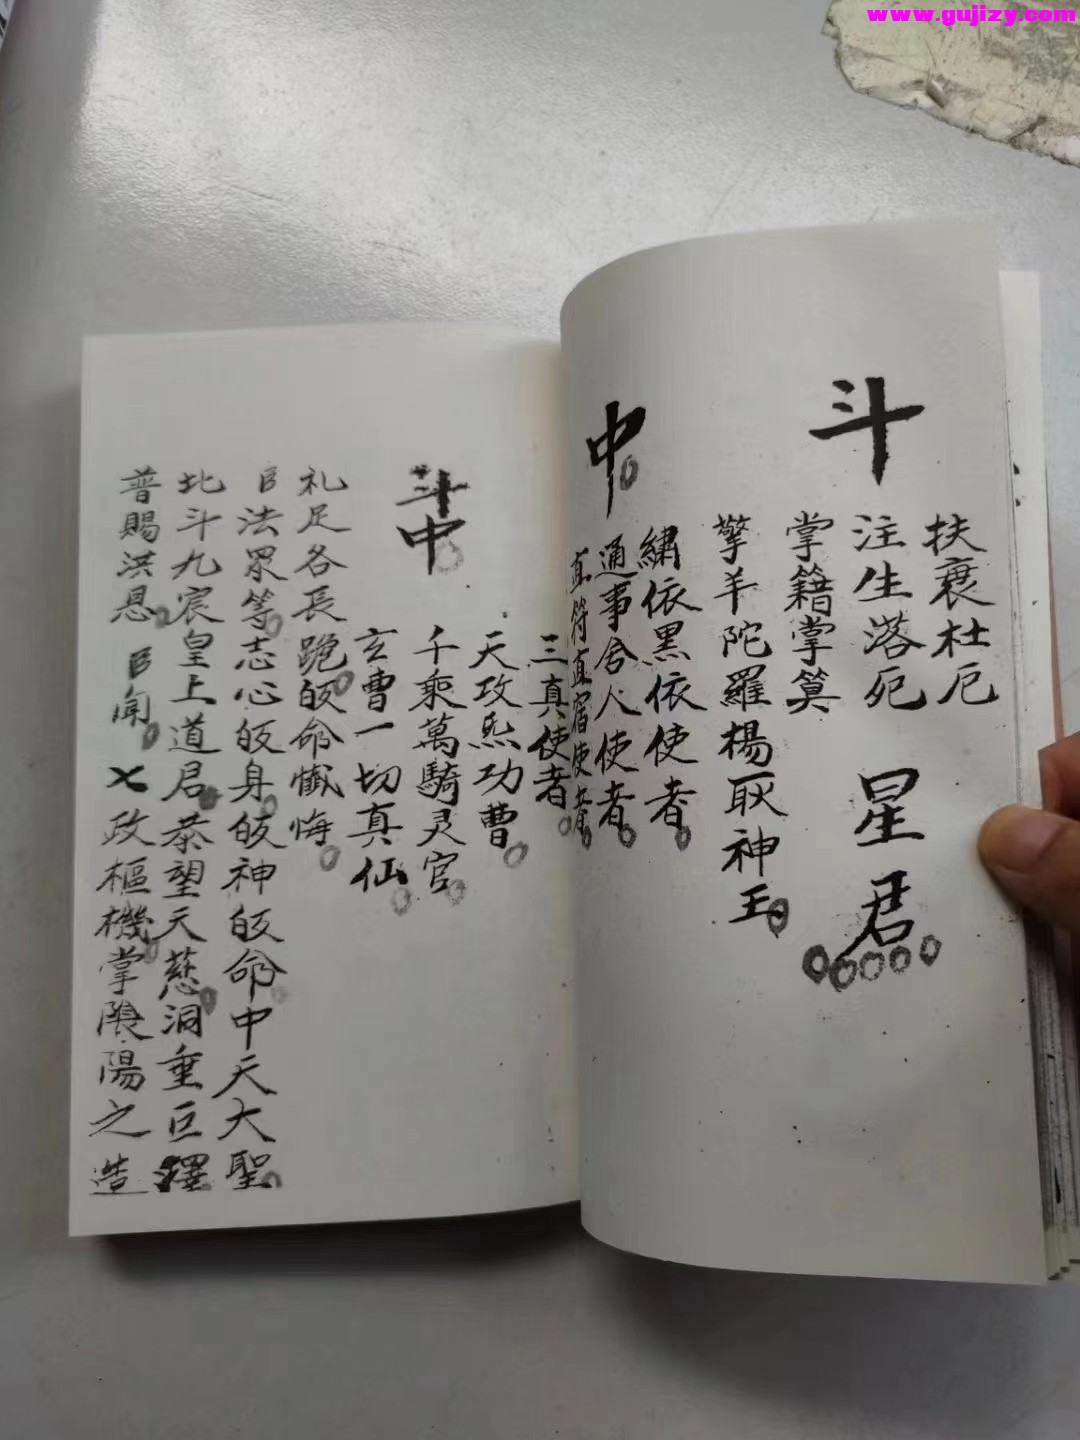 www.gujizy.com
斗
扶衰杜厄
注生落死
掌籍掌算
星君
擎羊陀羅楊耿神王
中
繡依黑依使者
通事舍人使者
直符直宿使者
三真使者
天攻炁功曹
斗中
千乘萬騎灵官
玄曹一切真仙
礼足各長跪皈命懺悔
臣法眾等志心皈身皈神皈命中天大聖
北斗九宸皇上道君恭望天慈洞垂巨澤
普賜洪恩 臣闻七政樞機掌陰陽之造